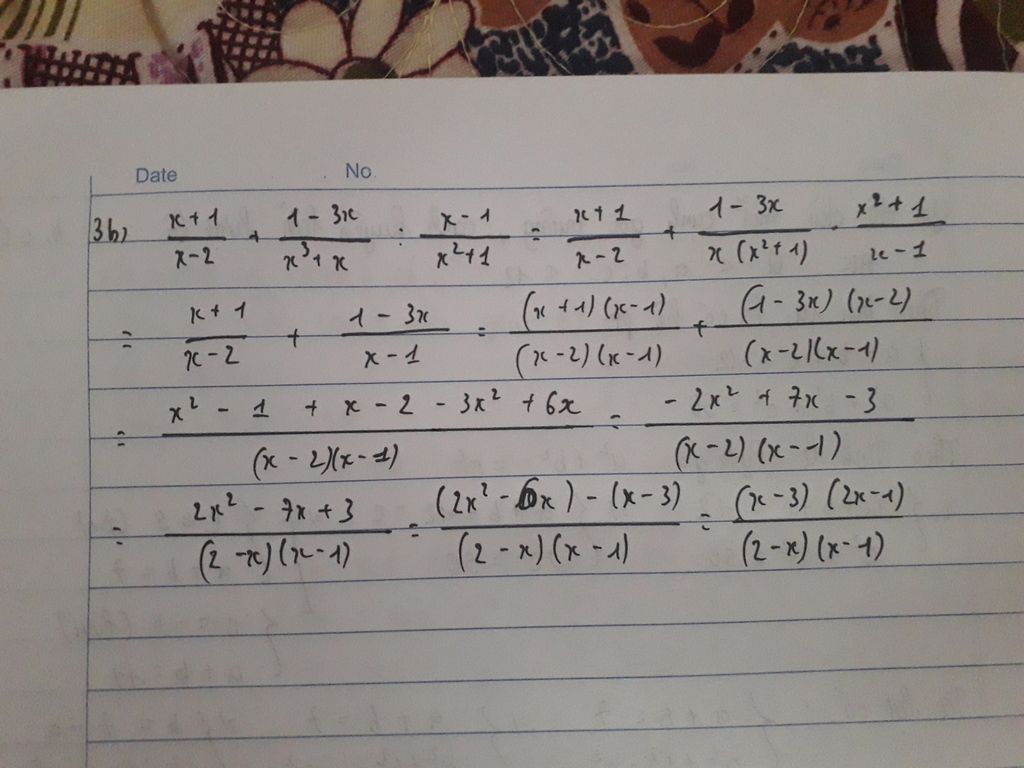 Date No
3b) \frac{x+1}{x-2} + \frac{1-3x}{x^3+x} : \frac{x-1}{x^2+1} = \frac{x+1}{x-2} + \frac{1-3x}{x(x^2+1)} \cdot \frac{x^2+1}{x-1}
= \frac{x+1}{x-2} + \frac{1-3x}{x-1} = \frac{(x+1)(x-1)}{(x-2)(x-1)} + \frac{(1-3x)(x-2)}{(x-2)(x-1)}
= \frac{x^2-1+x-2-3x^2+6x}{(x-2)(x-1)} = \frac{-2x^2+7x-3}{(x-2)(x-1)}
= \frac{2x^2-7x+3}{(2-x)(x-1)} = \frac{(2x^2-6x)-(x-3)}{(2-x)(x-1)} = \frac{(x-3)(2x-1)}{(2-x)(x-1)}